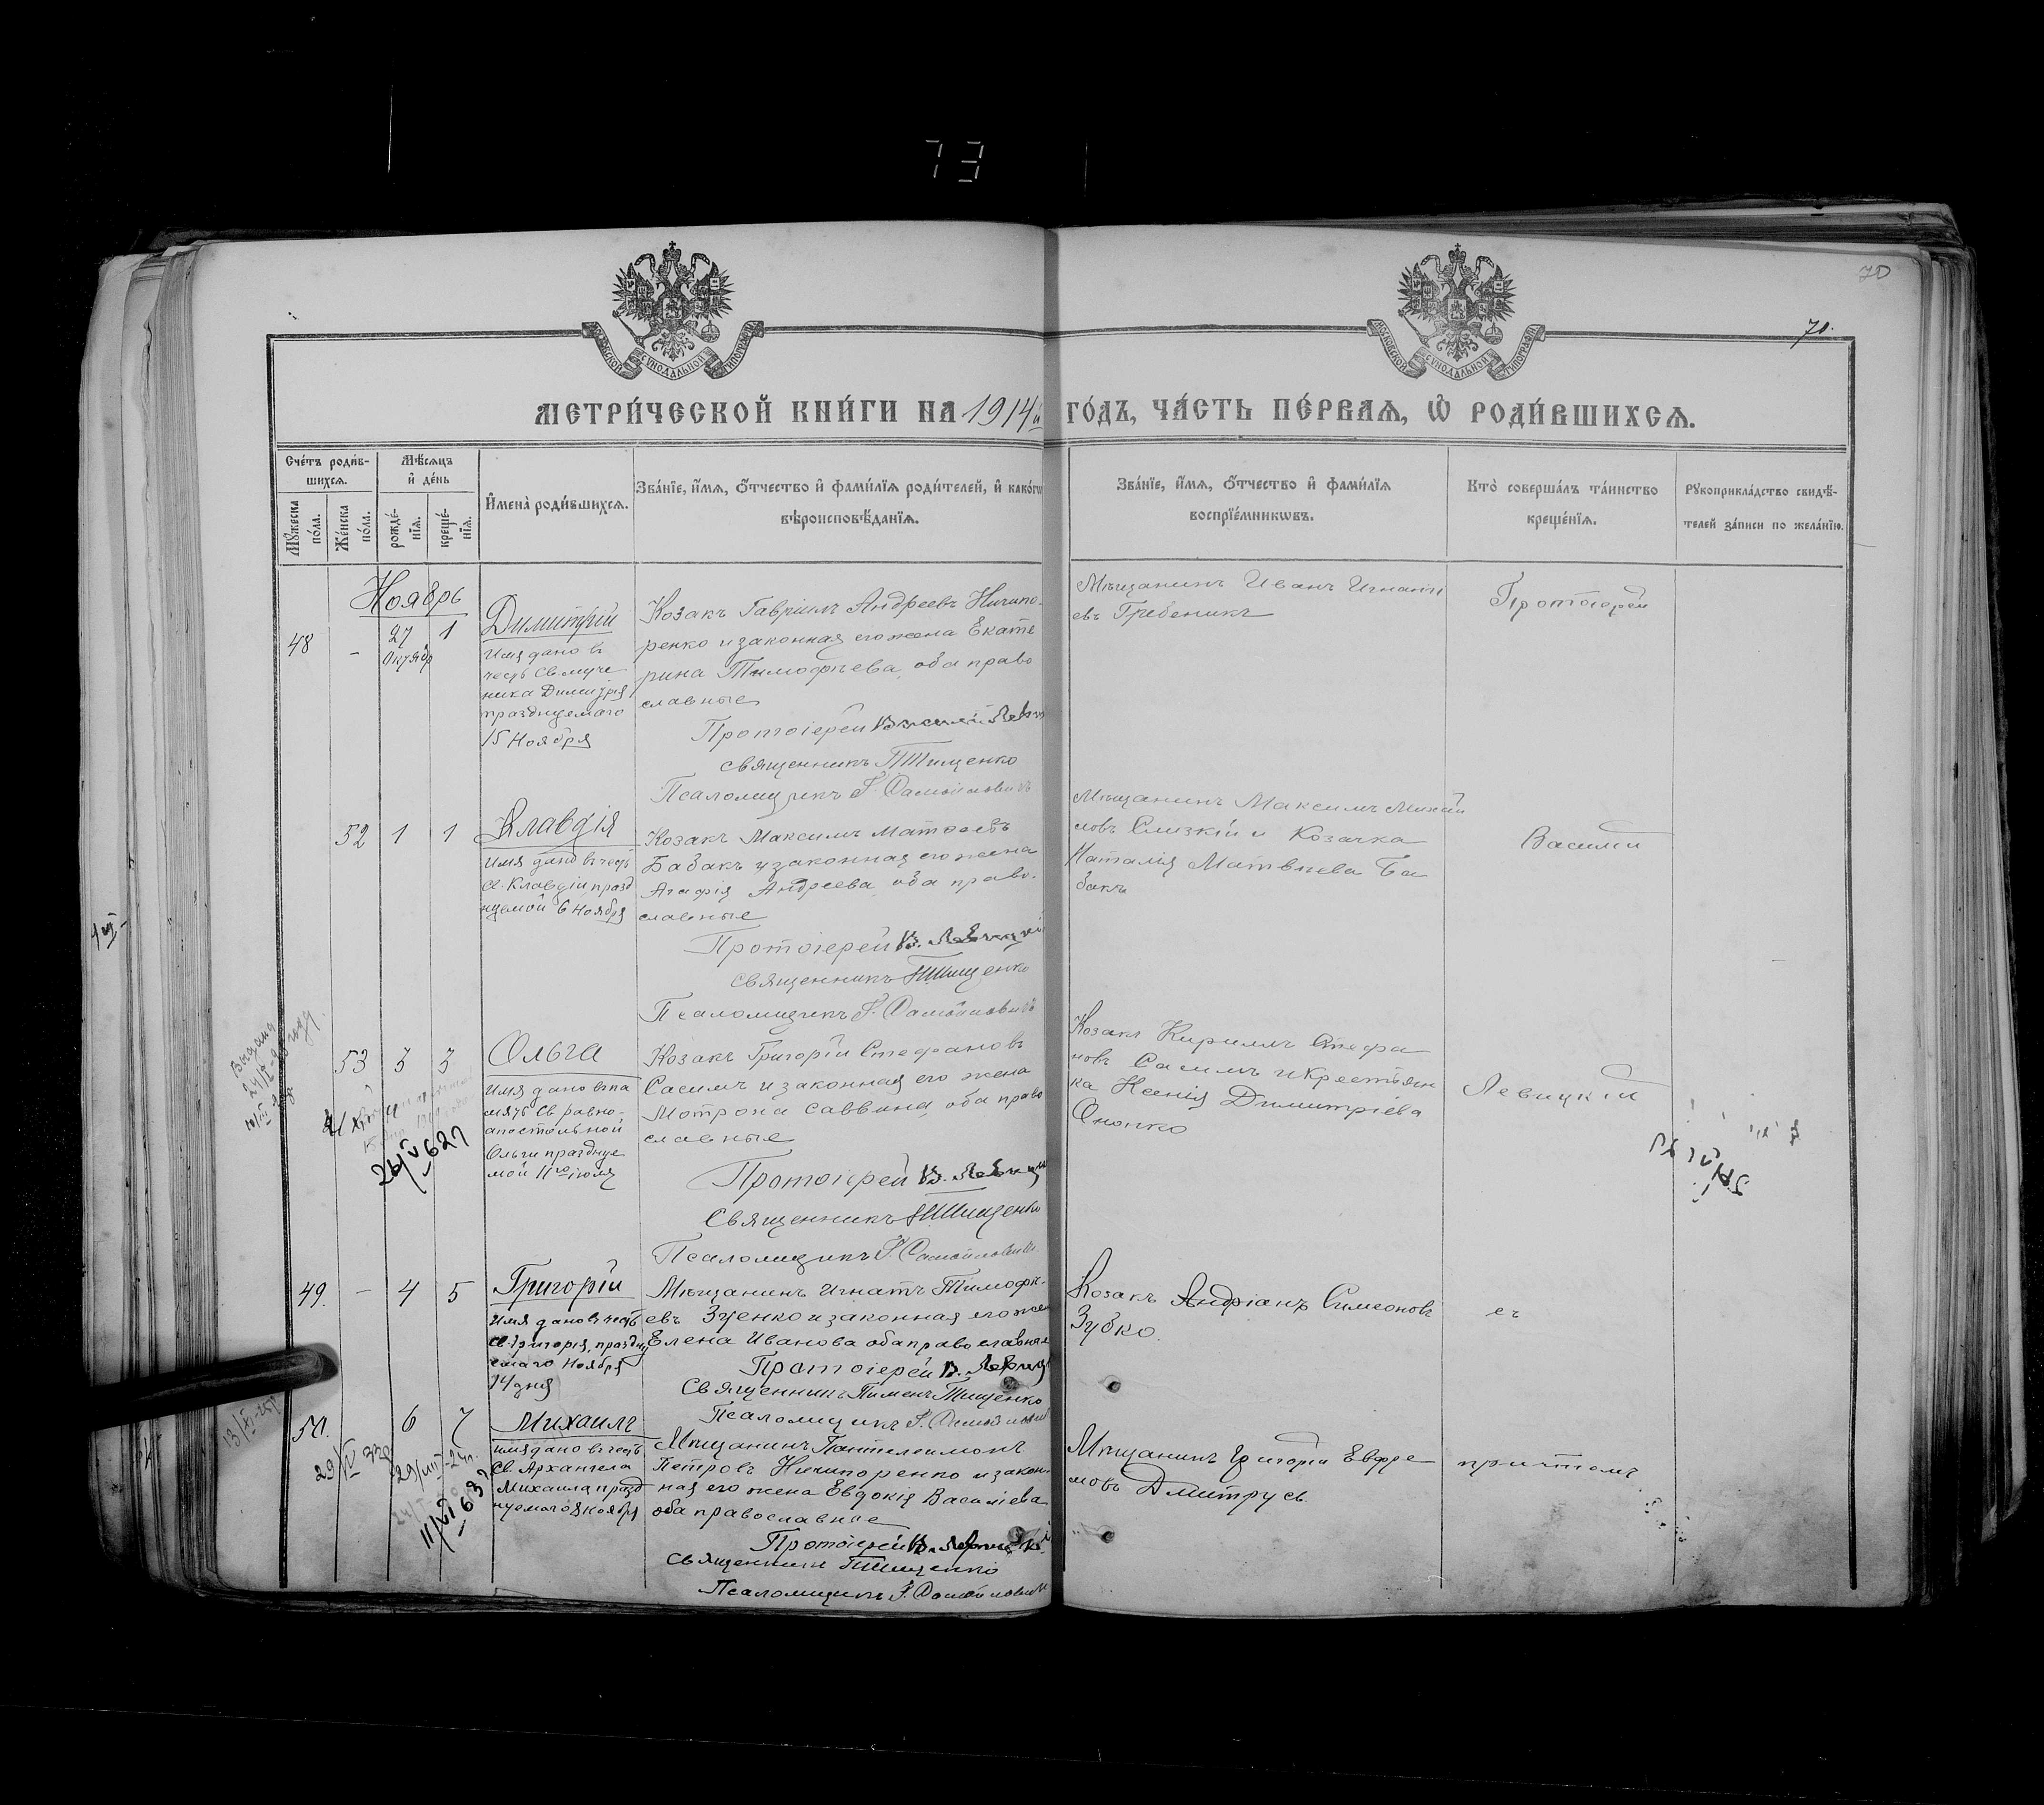 73
70
70.
МОСКОВСКОЙ СѴНОДАЛЬНОЙ ТИПОГРАФІИ
МОСКОВСКОЙ СѴНОДАЛЬНОЙ ТИПОГРАФІИ
МЕТРИ́ЧЕСКОЙ КНИ́ГИ НА 1914й ГО́ДЪ, ЧА́СТЬ ПЕ́РВАѦ, Ѽ РОДИ́ВШИХСѦ.
Сче́тъ роди́в-
шихсѧ.
Мꙋжеска по́ла.
Же́нска по́ла.
Мѣ́сѧцъ
и҆ де́нь
рожде́-
нїѧ.
креще́-
нїѧ.
И҆мена̀ роди́вшихсѧ.
Зва́нїе, и҆́мѧ, ѻ҆́тчество и҆ фами́лїѧ роди́телей, и҆ како́гѡ
вѣроисповѣ́данїѧ.
Зва́нїе, и҆́мѧ, ѻ҆́тчество и҆ фами́лїѧ
воспрїе́мникѡвъ.
Кто̀ соверша́лъ та́инство
креще́нїѧ.
Рꙋкоприкла́дство свидѣ́-
телей за́писи по жела́нїю.
Ноябрь
48
-
27
Октябр
1
Димитрій
Имя дано въ
честь Св. муче
ника Димитрія
празднуемаго
15 Ноября
Козакъ Гавріилъ Андреевъ Ничипо-
ренко и законная его жена Екате
рина Тимофѣева, оба право
славные
Протоіерей Василій
священникъ П Тищенко
Псаломщикъ
Мѣщанинъ Иванъ Игнаті
евъ Гребеникъ
Протоіерей
52
1
1
Клавдія
Имя дано въ честь
св. Клавдіи празд
нуемой 6 Ноября
Козакъ Максимъ Матвеевъ
Бабакъ и законная его жена
Агафія Андреева, оба право-
славные
Протоіерей В. Левицкій
священникъ П Тищенко
Псаломщикъ
Мѣщанинъ Максимъ Михаи
ловъ Слизкій и Козачка
Наталія Матвѣева Ба
бакъ
Василій
53
3
3
Ольга
Имя дано въ па
мять Св. равно-
апостольной
Ольги празднуе
мой 11го іюля
Козакъ Григорій Стефановъ
Сасимъ и законная его жена
Мотрона Саввина, оба право
славные
Протоіерей В. Левицкій
Священникъ П Тищенко
Псаломщикъ
Козакъ Кириллъ Стефа
новъ Сасимъ и Крестьян
ка Ксенія Димитріева
Онопко
Левицкій
Выдана
49.
-
4
5
Григорій
Имя дано въ честь
св. Григорія, праздну
емаго Ноября
14 дня
Мѣщанинъ Игнатъ Тимофѣ-
евъ Зуенко и законная его жена
Елена Иванова оба православные
Протоіерей В. Левицк
Священникъ Пименъ Тищенко
Псаломщикъ
Козакъ Андріанъ Симеоновъ
Зубко.
съ
50.
6
7
Михаилъ
имя дано въ честь
Св. Архангела
Михаила празд
нуемаго 8 Ноября
Мѣщанинъ Пантелеимонъ
Петровъ Ничипоренко и закон-
ная его жена Евдокія Василіева
оба православные
Протоіерей В. Левицкій
Священникъ П Тищенко
Псаломщикъ
Мѣщанинъ Григорій Евфре
мовъ Дмитрусь
причтомъ